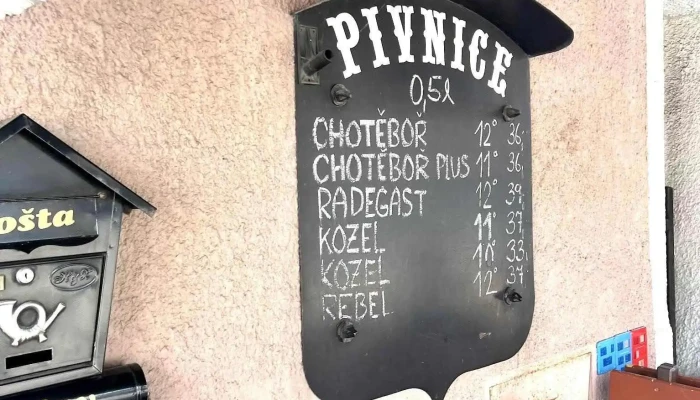 PIVNICE
0,5l
CHOTĚBOŘ 12° 36,
CHOTĚBOŘ PLUS 11° 36,
RADEGAST 12° 39,
KOZEL 11° 37,
KOZEL 10° 33,
REBEL 12° 37
ošta